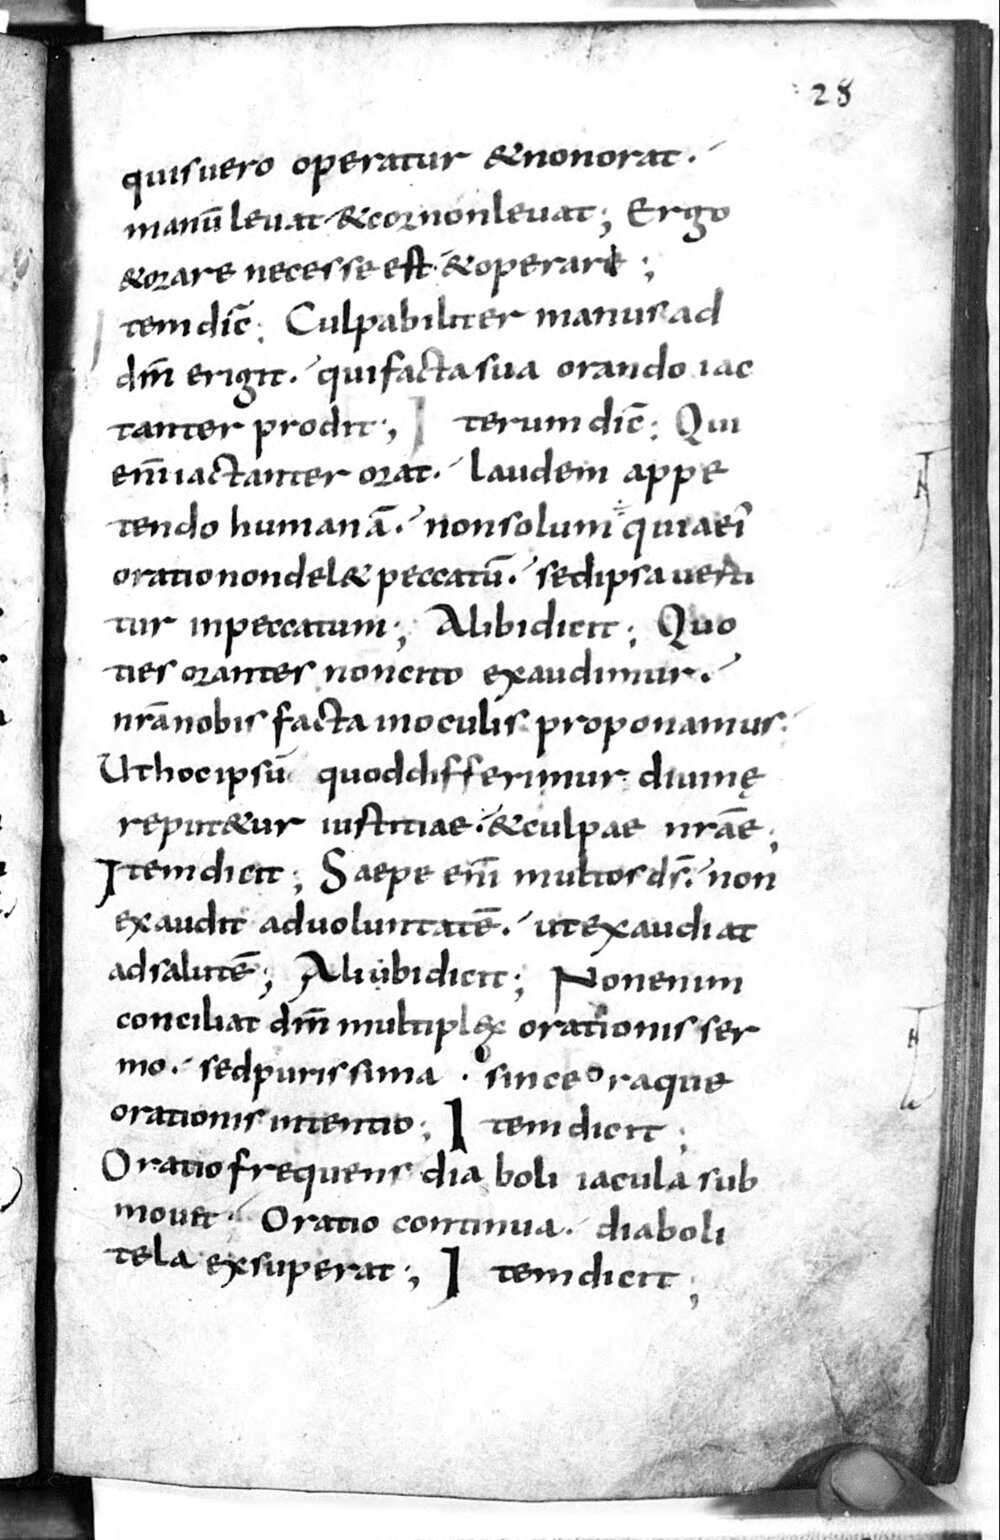 28
quisuero operatur &nonorat.
manū leuat &cornonleuat; Ergo
&orare necesse est &operare;
tem dic̄; Culpabiliter manus ad
dm̄ erigit. quifacta sua orando iac
tanter prodit; I terum dic̄; Qui
eni̅ iactanter orat. laudem appe
tendo humanā. nonsolum quiaei
oratio nondel& peccatū. sedipsa uerti
tur inpeccatum; Alibi dicit; Quo
ties orantes noncito exaudimur.
nrā nobis facta inoculis proponamus.
Uthocipsū quoddifferimur diuinę
reput&ur iustitiae. &culpae nrāe;
Itemdicit; Saepe eni̅ multos ds̄. non
exaudit aduoluntatē. utexaudiat
adsalutē; Aliubidicit; Nonenim
conciliat dm̄ multiplex orationis ser
mo. sedpurissima . sinceraque
orationis intentio; I tem dicit;
Oratio frequens diaboli iacula sub
mouet. Oratio continua. diaboli
tela exsuperat; I temdicit;